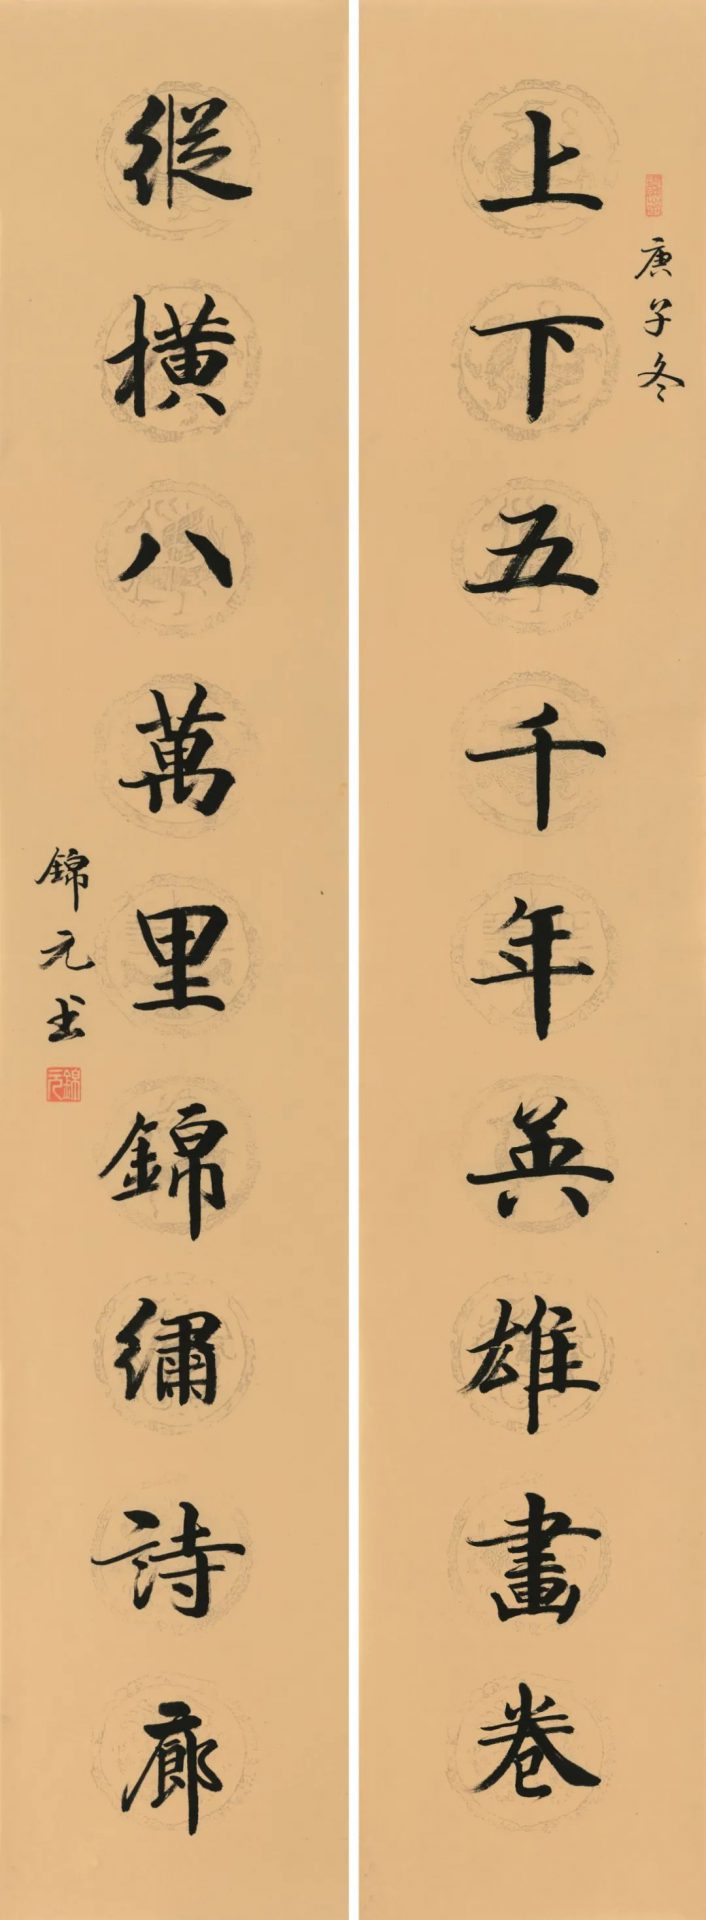 庚子冬
上下五千年英雄畫卷
縱橫八萬里錦繡詩廊
錦元书
錦元